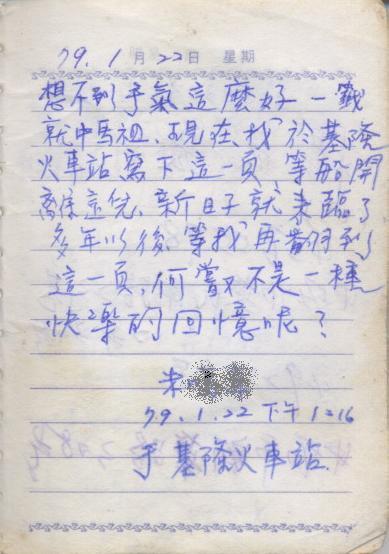 79.1月22日 星期
想不到手氣這麼好 一籤
就中馬祖,現在,我於基隆
火車站寫下這一頁 等船開
離東這兒,新日子就來臨了
多年以後,等我再翻到
這一頁,何嘗不是一種
快樂的回憶呢?
朱
79.1.22 下午 1216
于基隆火車站.